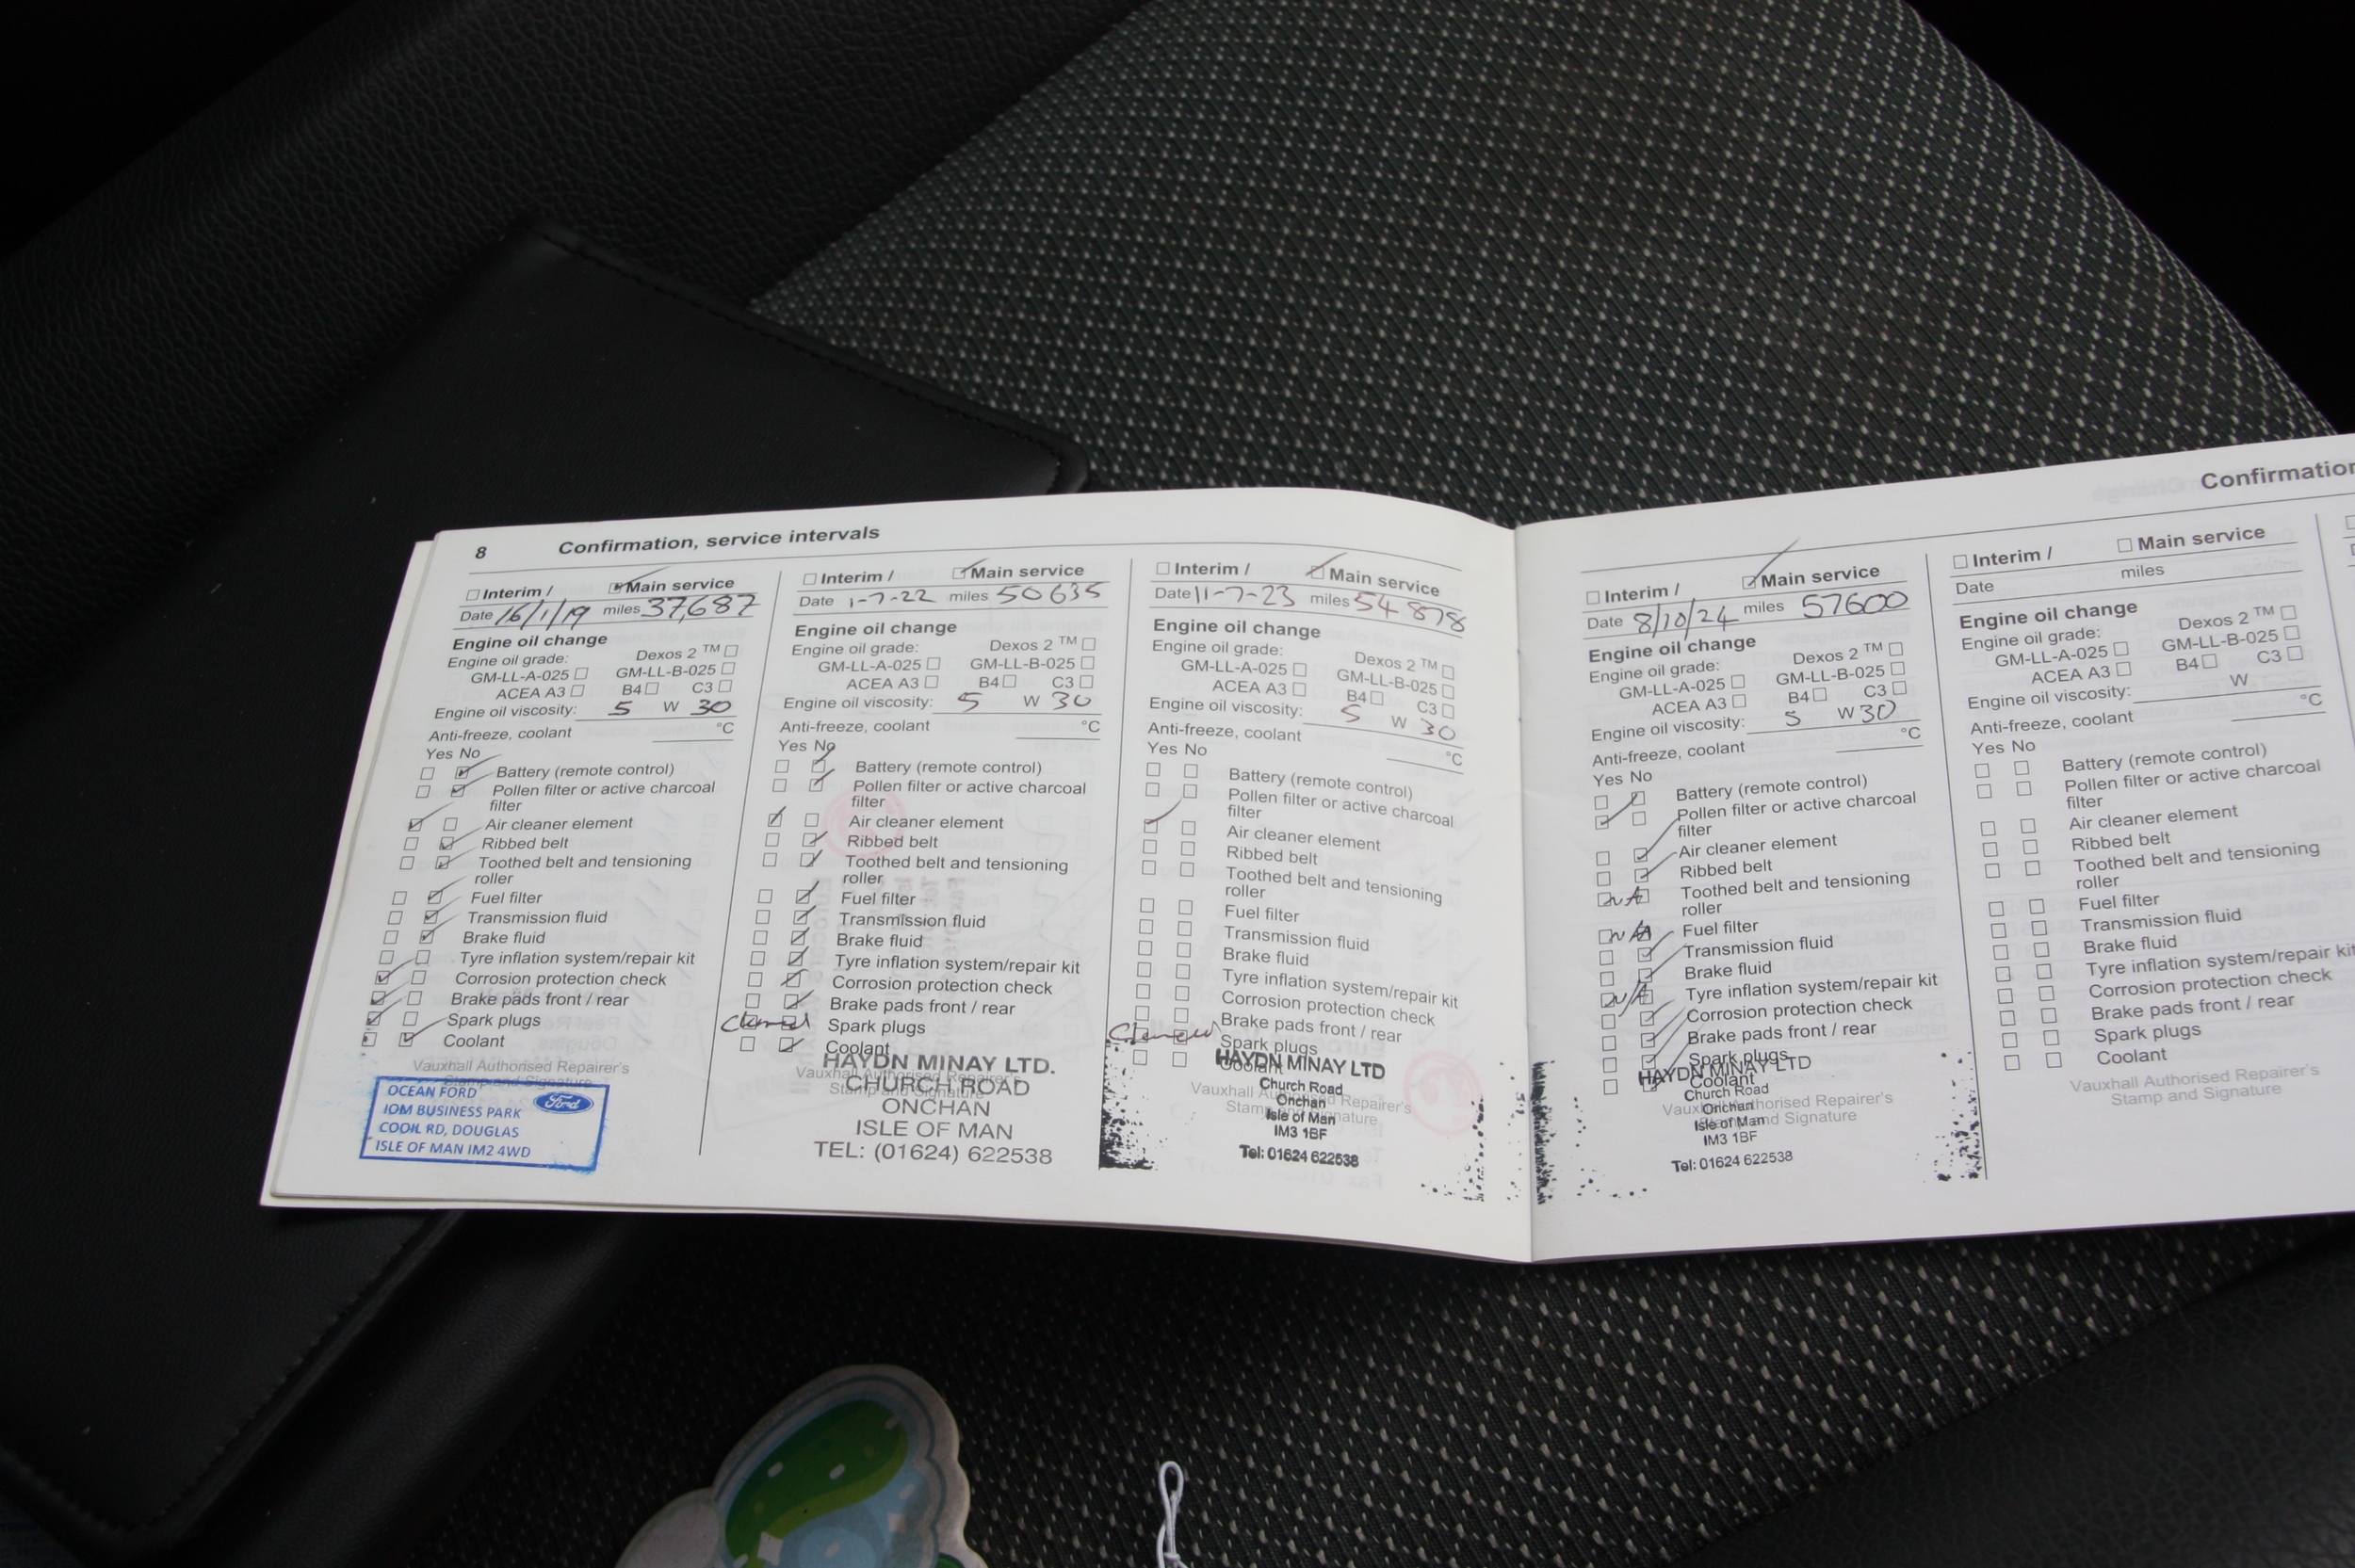 8 Confirmation, service intervals
Interim / Main service
Date 16/1/19 miles 37,687
Engine oil change
Engine oil grade: Dexos 2 ™
GM-LL-A-025 GM-LL-B-025
ACEA A3 B4 C3
Engine oil viscosity: 5 W 30
Anti-freeze, coolant °C
Yes No
Battery (remote control)
Pollen filter or active charcoal
filter
Air cleaner element
Ribbed belt
Toothed belt and tensioning
roller
Fuel filter
Transmission fluid
Brake fluid
Tyre inflation system/repair kit
Corrosion protection check
Brake pads front / rear
Spark plugs
Coolant
Vauxhall Authorised Repairer's
Stamp and Signature
OCEAN FORD
IOM BUSINESS PARK
COOIL RD, DOUGLAS
ISLE OF MAN IM2 4WD
Ford
Interim / Main service
Date 1-7-22 miles 50635
Engine oil change
Engine oil grade: Dexos 2 ™
GM-LL-A-025 GM-LL-B-025
ACEA A3 B4 C3
Engine oil viscosity: 5 W 30
Anti-freeze, coolant °C
Yes No
Battery (remote control)
Pollen filter or active charcoal
filter
Air cleaner element
Ribbed belt
Toothed belt and tensioning
roller
Fuel filter
Transmission fluid
Brake fluid
Tyre inflation system/repair kit
Corrosion protection check
Brake pads front / rear
Cleaned Spark plugs
Coolant
Vauxhall Authorised Repairer's
Stamp and Signature
HAYDN MINAY LTD.
CHURCH ROAD
ONCHAN
ISLE OF MAN
TEL: (01624) 622538
Interim / Main service
Date 11-7-23 miles 54878
Engine oil change
Engine oil grade: Dexos 2 ™
GM-LL-A-025 GM-LL-B-025
ACEA A3 B4 C3
Engine oil viscosity: 5 W 30
Anti-freeze, coolant °C
Yes No
Battery (remote control)
Pollen filter or active charcoal
filter
Air cleaner element
Ribbed belt
Toothed belt and tensioning
roller
Fuel filter
Transmission fluid
Brake fluid
Tyre inflation system/repair kit
Corrosion protection check
Brake pads front / rear
Cleaned Spark plugs
Coolant
Vauxhall Authorised Repairer's
Stamp and Signature
HAYDN MINAY LTD
Church Road
Onchan
Isle of Man
IM3 1BF
Tel: 01624 622538
Confirmation
Interim / Main service
Date 8/10/24 miles 57600
Engine oil change
Engine oil grade: Dexos 2 ™
GM-LL-A-025 GM-LL-B-025
ACEA A3 B4 C3
Engine oil viscosity: 5 W 30
Anti-freeze, coolant °C
Yes No
Battery (remote control)
Pollen filter or active charcoal
filter
Air cleaner element
Ribbed belt
N/A Toothed belt and tensioning
roller
N/A Fuel filter
Transmission fluid
Brake fluid
N/A Tyre inflation system/repair kit
Corrosion protection check
Brake pads front / rear
Spark plugs
Coolant
Vauxhall Authorised Repairer's
Stamp and Signature
HAYDN MINAY LTD
Church Road
Onchan
Isle of Man
IM3 1BF
Tel: 01624 622538
Interim / Main service
Date miles
Engine oil change
Engine oil grade: Dexos 2 ™
GM-LL-A-025 GM-LL-B-025
ACEA A3 B4 C3
Engine oil viscosity: W
Anti-freeze, coolant °C
Yes No
Battery (remote control)
Pollen filter or active charcoal
filter
Air cleaner element
Ribbed belt
Toothed belt and tensioning
roller
Fuel filter
Transmission fluid
Brake fluid
Tyre inflation system/repair kit
Corrosion protection check
Brake pads front / rear
Spark plugs
Coolant
Vauxhall Authorised Repairer's
Stamp and Signature